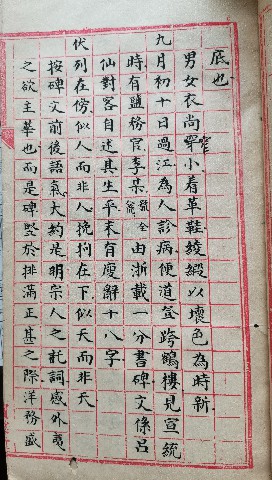 底也
男女衣尚穿小着革鞋綾緞以壞色為時新
九月初十日過江為人診病便道登跨鶴樓見宣統
時有鹽務官李由浙載一分書碑文係呂
仙對客自述其生平末有廋辭十八字
伏列在傍似人而非人挽拘在下似天而非天
按碑文前後語氣大約是明宗人之託詞感外夷
之欲主華也而是碑竪於排滿正甚之際洋務盛